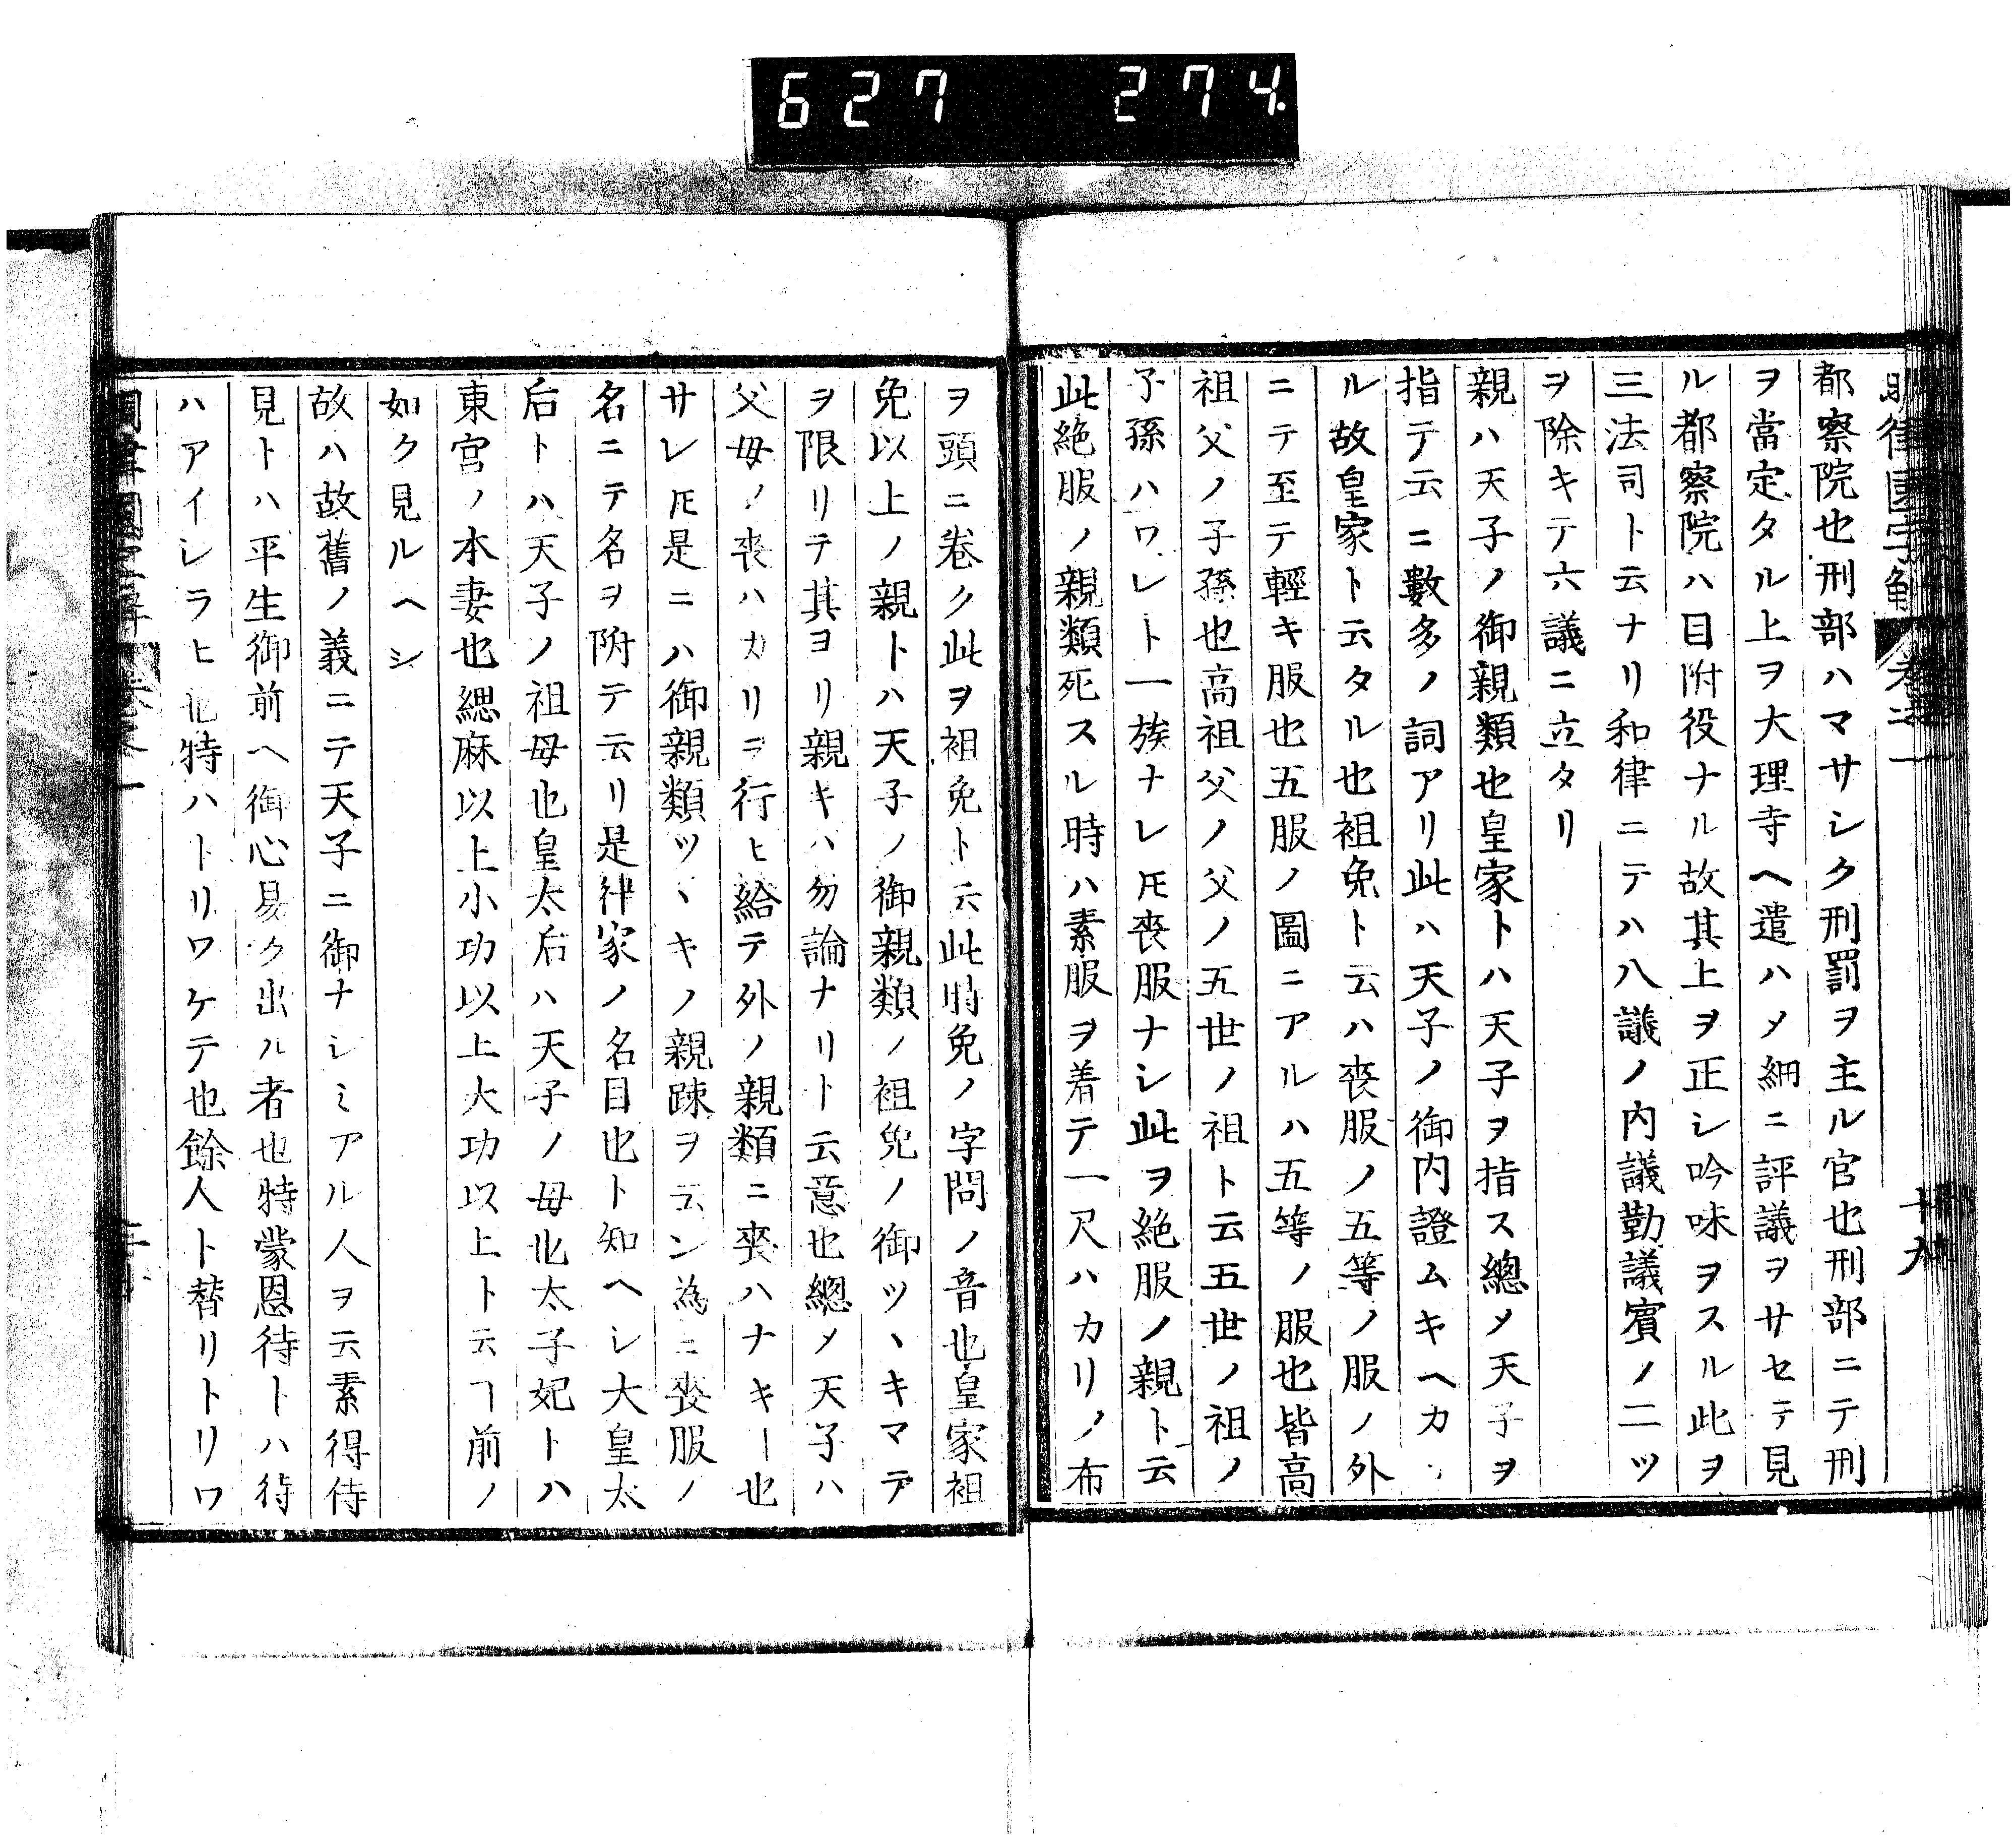 627 274
明律國字解 卷之一 十九
都察院也刑部ハマサシク刑罰ヲ主ル官也刑部ニテ刑
ヲ當定タル上ヲ大理寺ヘ遣ハメ細ニ評議ヲサセテ見
ル都察院ハ目附役ナル故其上ヲ正シ吟味ヲスル此ヲ
三法司ト云ナリ和律ニテハ八議ノ内議勤議賓ノ二ツ
ヲ除キテ六議ニ立タリ
親ハ天子ノ御親類也皇家トハ天子ヲ指ス總メ天子ヲ
指テ云ニ數多ノ詞アリ此ハ天子ノ御内證ムキヘカヽ
ル故皇家ト云タル也袒免ト云ハ喪服ノ五等ノ服ノ外
ニテ至テ輕キ服也五服ノ圖ニアルハ五等ノ服也皆高
祖父ノ子孫也高祖父ノ父ノ五世ノ祖ト云五世ノ祖ノ
子孫ハワレト一族ナレ𪜈喪服ナシ此ヲ絶服ノ親ト云
此絶服ノ親類死スル時ハ素服ヲ着テ一尺ハカリノ布
ヲ頭ニ卷ク此ヲ袒免ト云此時免ノ字問ノ音也皇家袒
免以上ノ親トハ天子ノ御親類ノ袒免ノ御ツヽキマデ
ヲ限リテ其ヨリ親キハ勿論ナリト云意也總メ天子ハ
父母ノ喪ハカリヲ行ヒ給テ外ノ親類ニ喪ハナキー也
サレ𪜈是ニハ御親類ツヽキノ親疎ヲ云ン為ニ喪服ノ
名ニテ名ヲ附テ云リ是律家ノ名目也ト知ヘシ大皇太
后トハ天子ノ祖母也皇太后ハ天子ノ母也太子妃トハ
東宮ノ本妻也緦麻以上小功以上大功以上ト云ヿ前ノ
如ク見ルヘシ
故ハ故舊ノ義ニテ天子ニ御ナシミアル人ヲ云素得侍
見トハ平生御前ヘ御心易ク出ル者也特蒙恩待トハ待
ハアイシラヒ也特ハトリワケテ也餘人ト替リトリワ